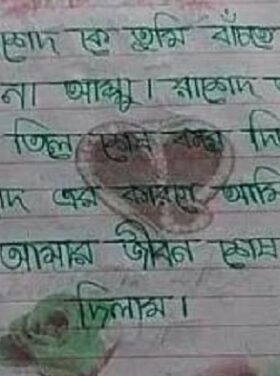 শেদ কে তুমি বাঁচতে
না আম্মু। রাশেদ
তিলে শেষ করে দি
দ এর কারণে আমি
আমার জীবন শেষ
দিলাম।